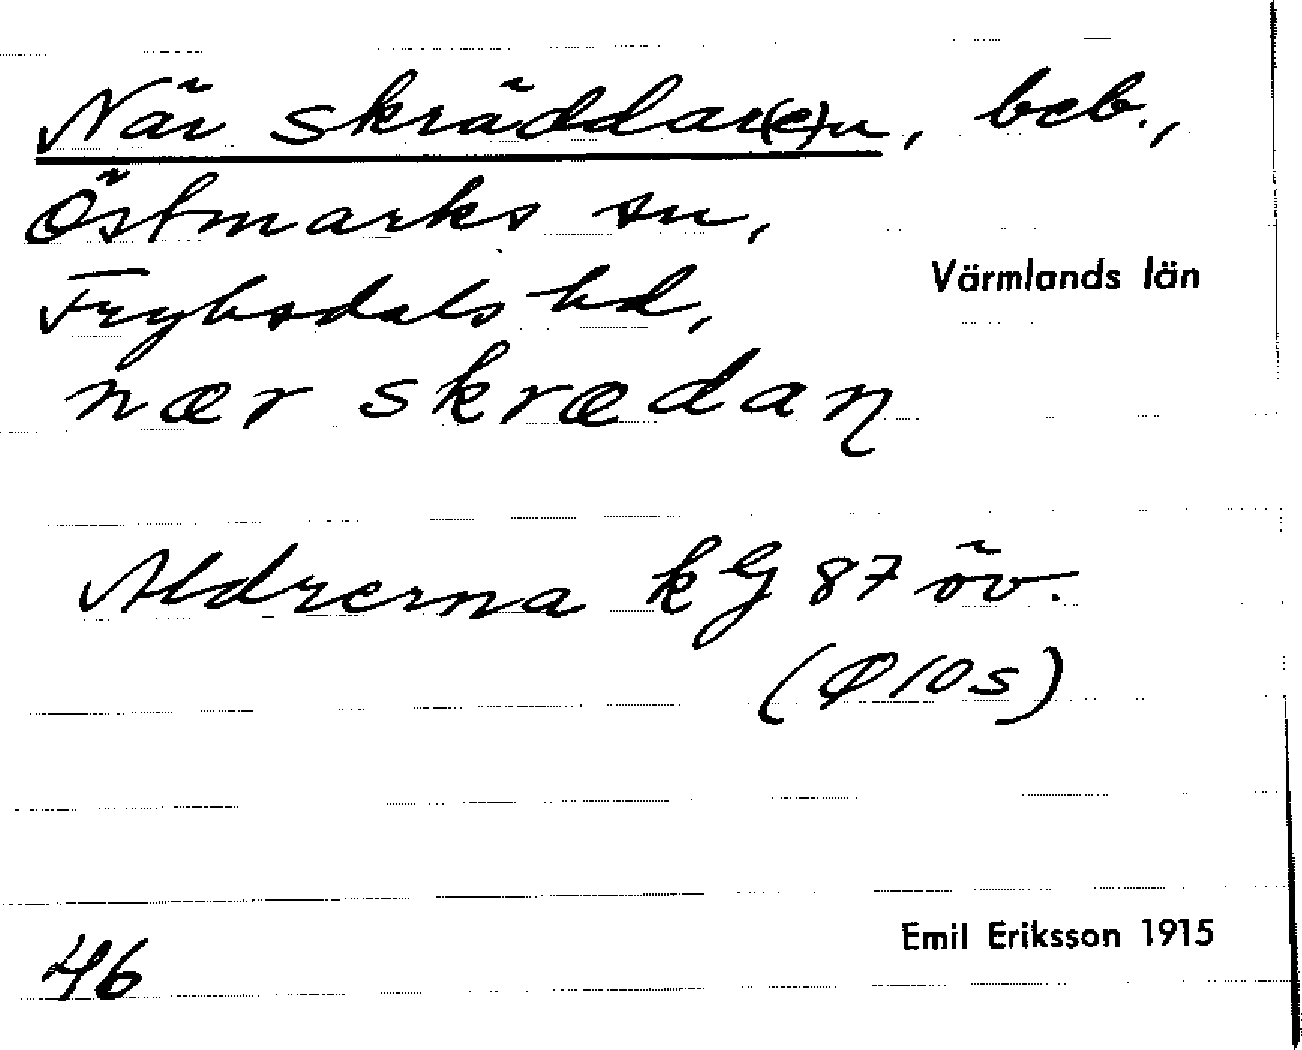 När skräddar(e)n, beb.,
Östmarks sn,
Fryksdals hd,
Värmlands län
nær skrædaɳ
Aldrerna kG 87 öv.
(Ø10s)
Emil Eriksson 1915
46